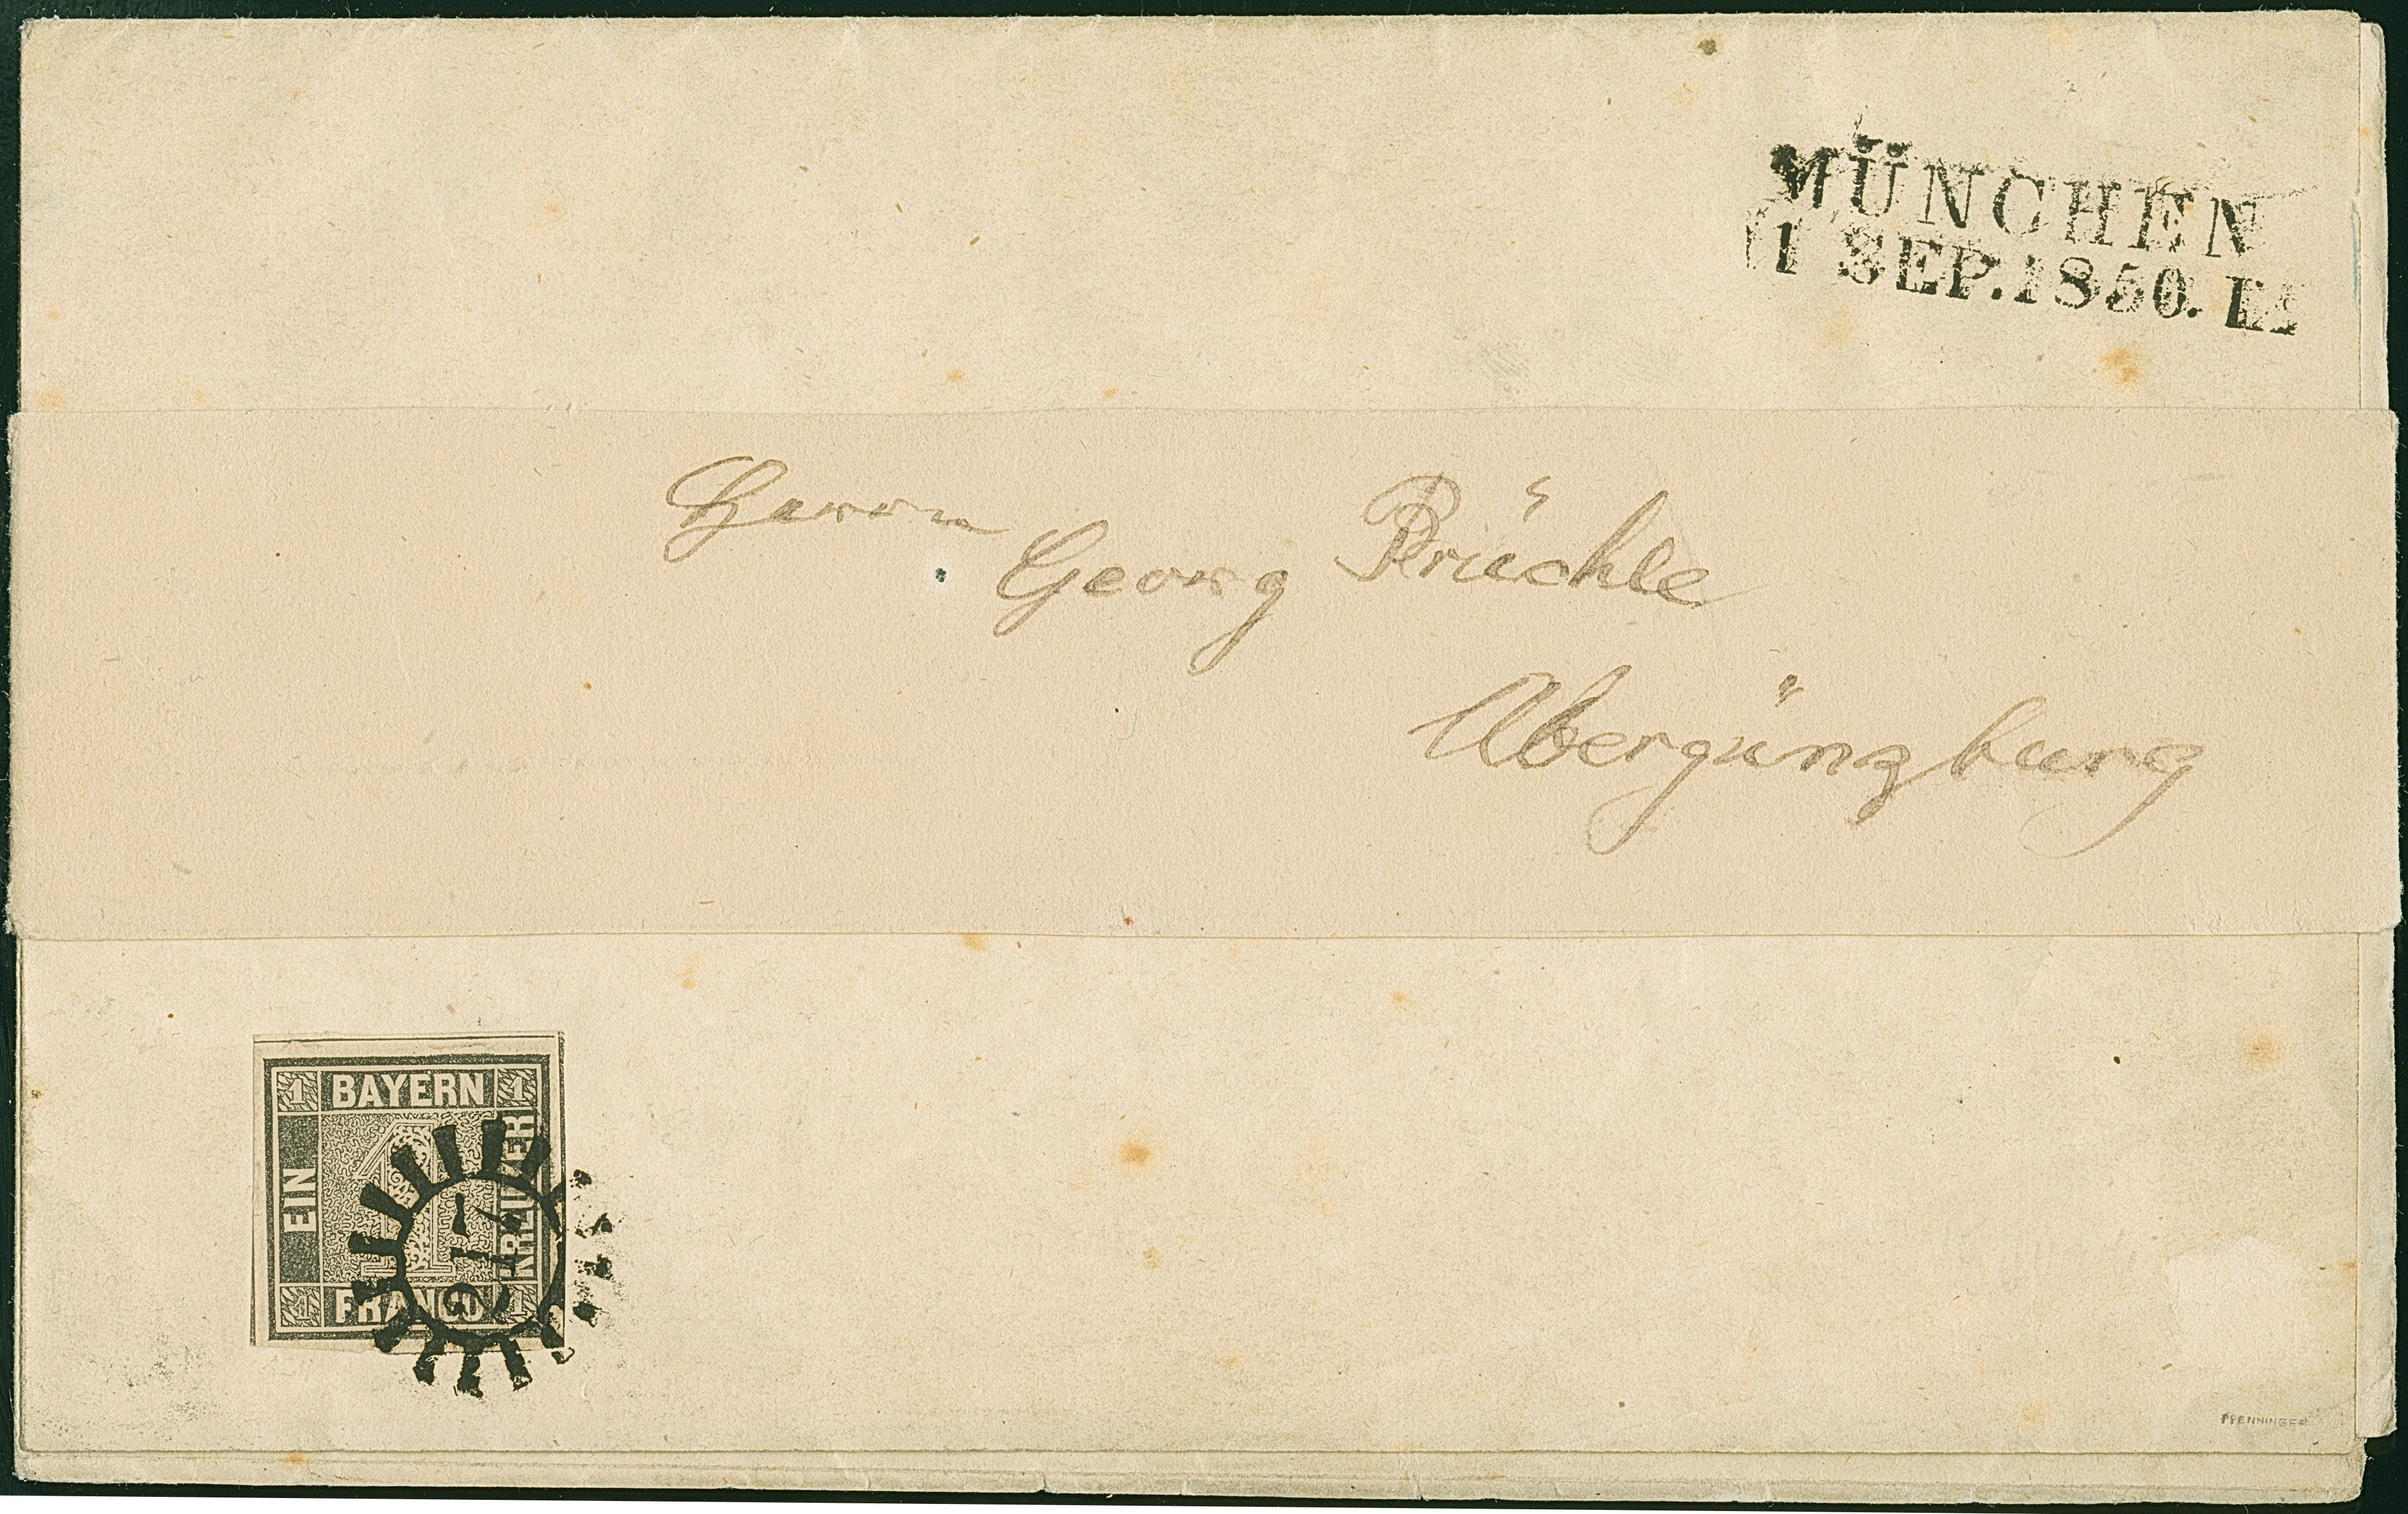 MÜNCHEN
1 SEP. 1850.
Herrn
Georg Prüchle
Obergünzburg
1 BAYERN 1
EIN
KREUZER
1 FRANCO 1
1
PFENNINGER